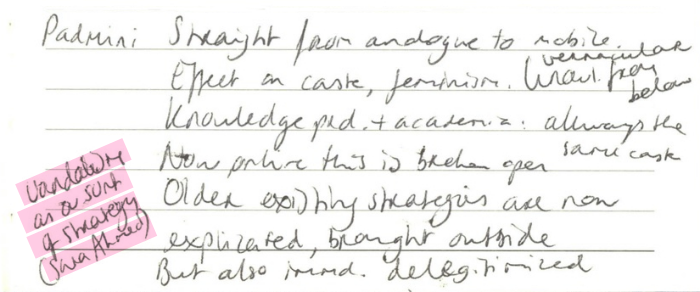 Padmini Straight from analogue to mobile.
Effect on caste, feminism. vernacular from below
Knowledge prod. + academia: allways the same caste
Now online this is broken open
Older existing strategies are now
explicated, brought outside
But also immd. delegitimized
vandalism
as a sort
of strategy
(Sara Ahmed)